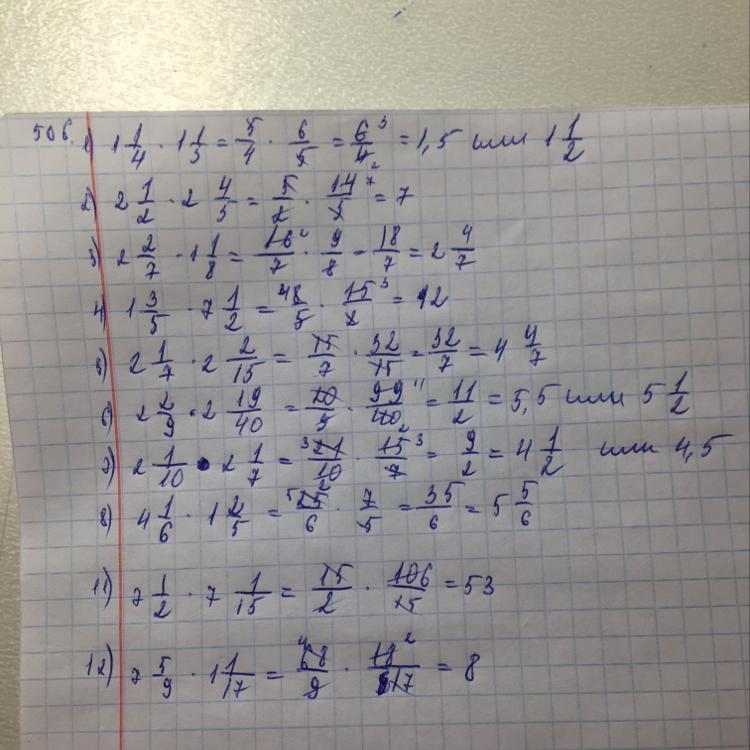 506. 1) 1 1/4 · 1 1/5 = 5/4 · 6/5 = 6³/4₂ = 1,5 или 1 1/2
2) 2 1/2 · 2 4/5 = 5/2 · 14⁷/5 = 7
3) 2 2/7 · 1 1/8 = 16²/7 · 9/8 = 18/7 = 2 4/7
4) 1 3/5 · 7 1/2 = ⁴8/5 · 15³/2 = 12
5) 2 1/7 · 2 2/15 = 15/7 · 32/15 = 32/7 = 4 4/7
6) 2 2/9 · 2 19/40 = 20/9 · 99¹¹/40₂ = 11/2 = 5,5 или 5 1/2
7) 2 1/10 · 2 1/7 = ³21/10₂ · 15³/7 = 9/2 = 4 1/2 или 4,5
8) 4 1/6 · 1 2/5 = ⁵25/6 · 7/5 = 35/6 = 5 5/6
11) 7 1/2 · 7 1/15 = 15/2 · 106/15 = 53
12) 7 5/9 · 1 1/17 = ⁴68/9 · 18²/17 = 8